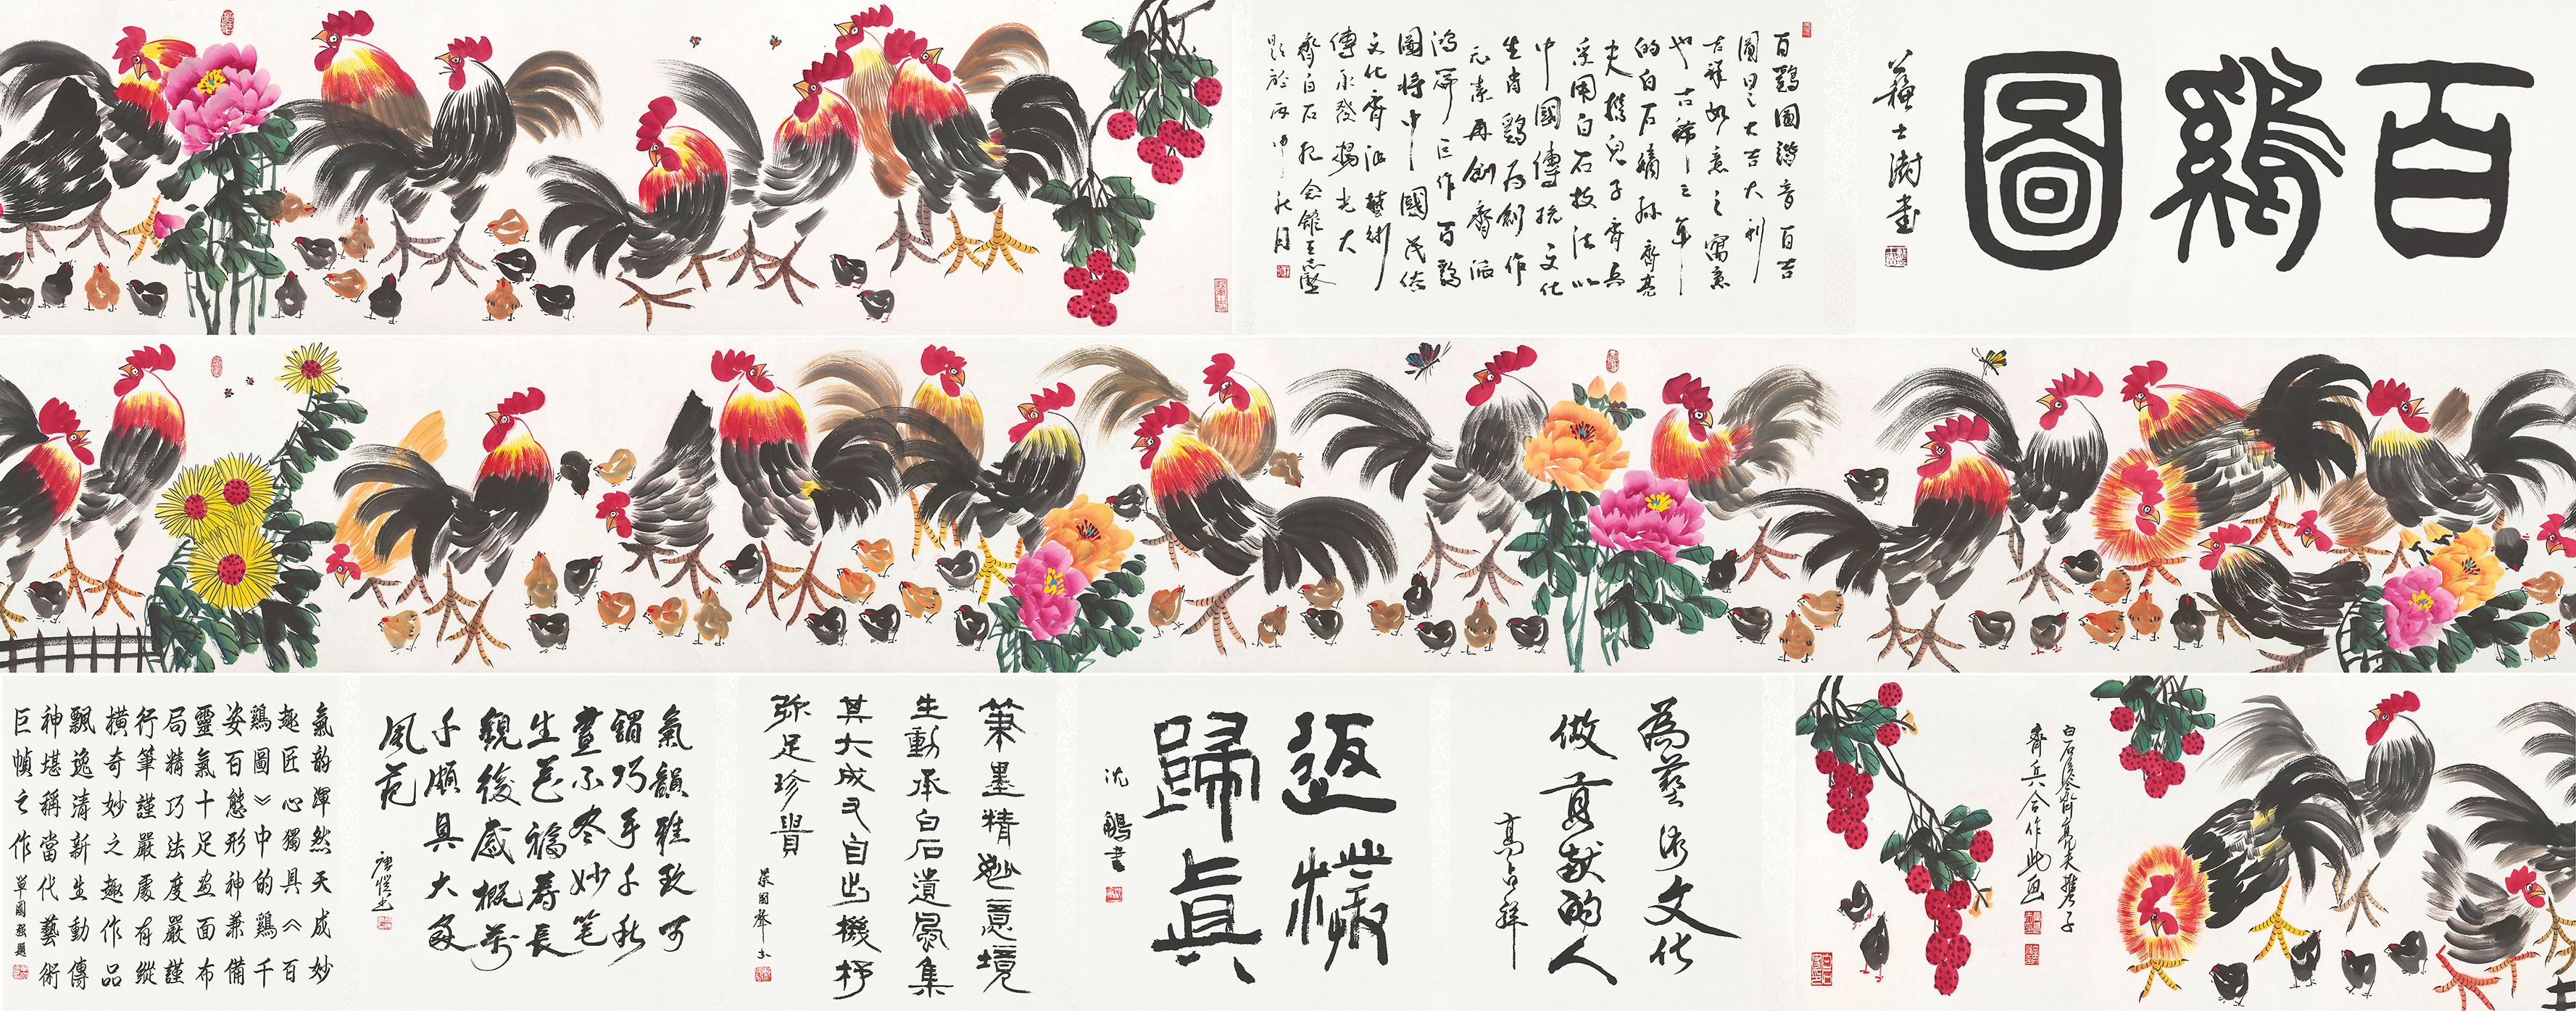 百鷄圖
蘇士澍書
百鷄圖諧音百吉
圖思之大吉大利
吉祥如意之寓意
也古稀之年
的白石嫡孫齊亮
夫攜兒子齊兵
采用白石技法以
中國傳統文化
生肖鷄爲創作
元素再創齊派
鴻篇巨作百鷄
圖將中國民俗
文化齊派藝術
傳承發揚光大
齊白石紀念館王志堅
題於丙申秋月
白石後人齊亮夫攜子
齊兵合作此画
為藝術文化
做貢献的人
高占祥
返樸
歸真
沈鵬書
筆墨精妙意境
生動承白石遺風集
其大成又自出機杼
弥足珍貴
蔡國聲書
氣韻雅致可
謂巧手千秋
畫不盡妙笔
生花福壽長
觀後感概萬
千頗具大家
風范
氣韵渾然天成妙
趣匠心獨具《百
鷄圖》中的鷄千
姿百態形神兼備
靈氣十足画面布
局精巧法度嚴謹
行筆謹嚴處有縱
横奇妙之趣作品
飄逸清新生動傳
神堪稱當代藝術
巨幀之作
單國強題